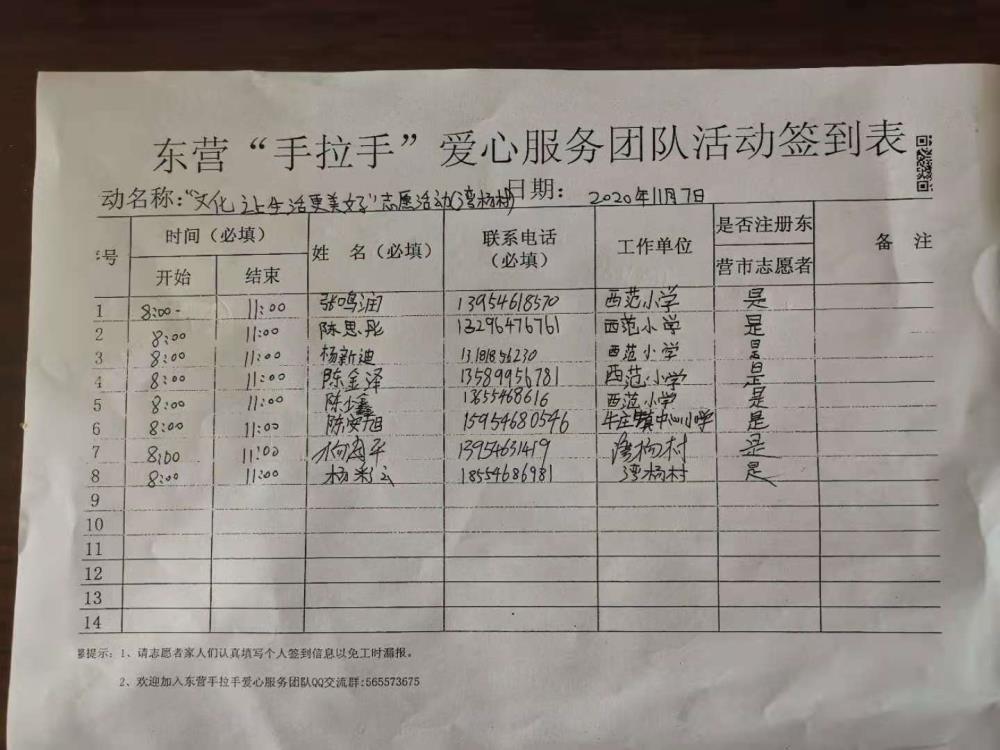 东营“手拉手”爱心服务团队活动签到表
动名称:“文化让生活更美好”志愿活动(湾杨村) 日期: 2020年11月7日
号 时间(必填) 姓 名(必填) 联系电话(必填) 工作单位 是否注册东营市志愿者 备 注
开始 结束
1 8:00- 11:00 张鸣润 13954618570 西范小学 是
2 8:00 11:00 陈思彤 13296476761 西范小学 是
3 8:00 11:00 杨新迪 13181856230 西范小学 是
4 8:00 11:00 陈金泽 13589956781 西范小学 是
5 8:00 11:00 陈 鑫 1365468616 西范小学 是
6 8:00 11:00 陈 旭 15954680546 牛庄镇中心小学 是
7 8:00 11:00 平 13954631419 湾杨村 是
8 8:00 11:00 杨彩云 18554686981 湾杨村 是
9
10
11
12
13
14
提示: 1、请志愿者家人们认真填写个人签到信息以免工时漏报。
2、欢迎加入东营手拉手爱心服务团队QQ交流群:565573675